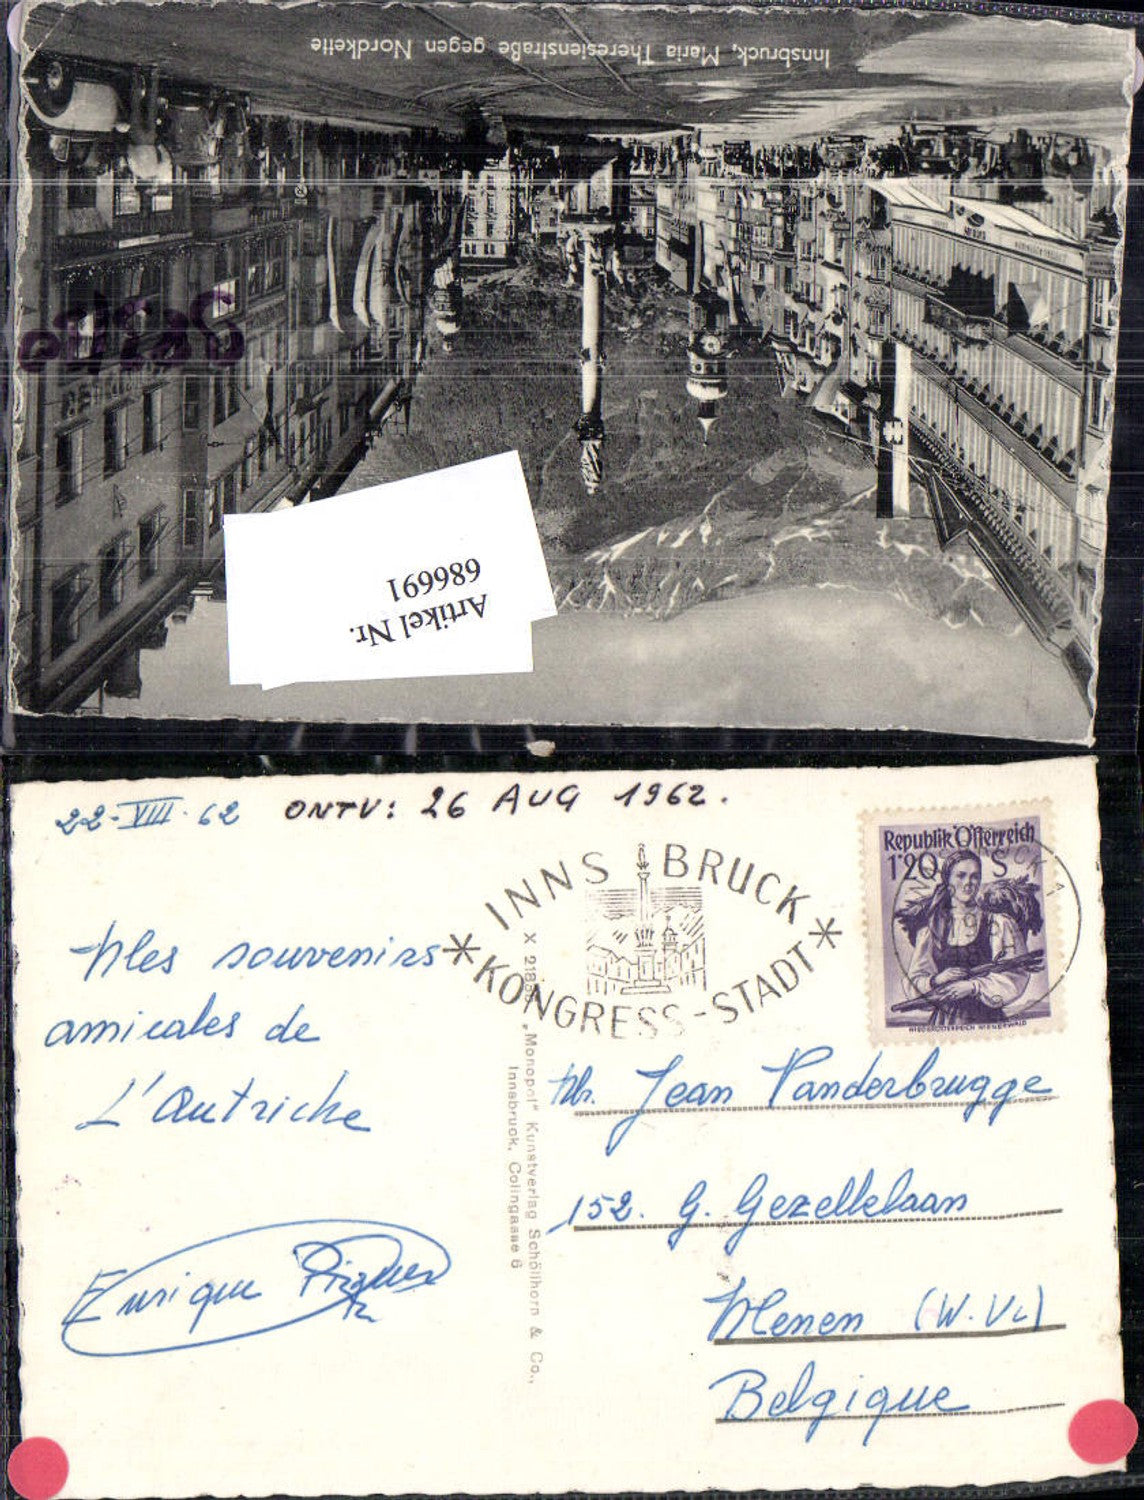 Innsbruck, Maria Theresienstraße gegen Nordkette
Artikel Nr.
686691
22-VIII-62 ONTV: 26 AUG 1962.
INNSBRUCK
KONGRESS-STADT
Republik Österreich
1'20 S
NIEDERÖSTERREICH WIENERWALD
Mes souvenirs
amicales de
L'Autriche
Enrique
„Monopol" Kunstverlag Schöllhorn & Co.,
Innsbruck, Colingasse 6
Mr. Jean Vanderbrugge
152. G. Gezellelaan
Menen (W. Vl)
Belgique